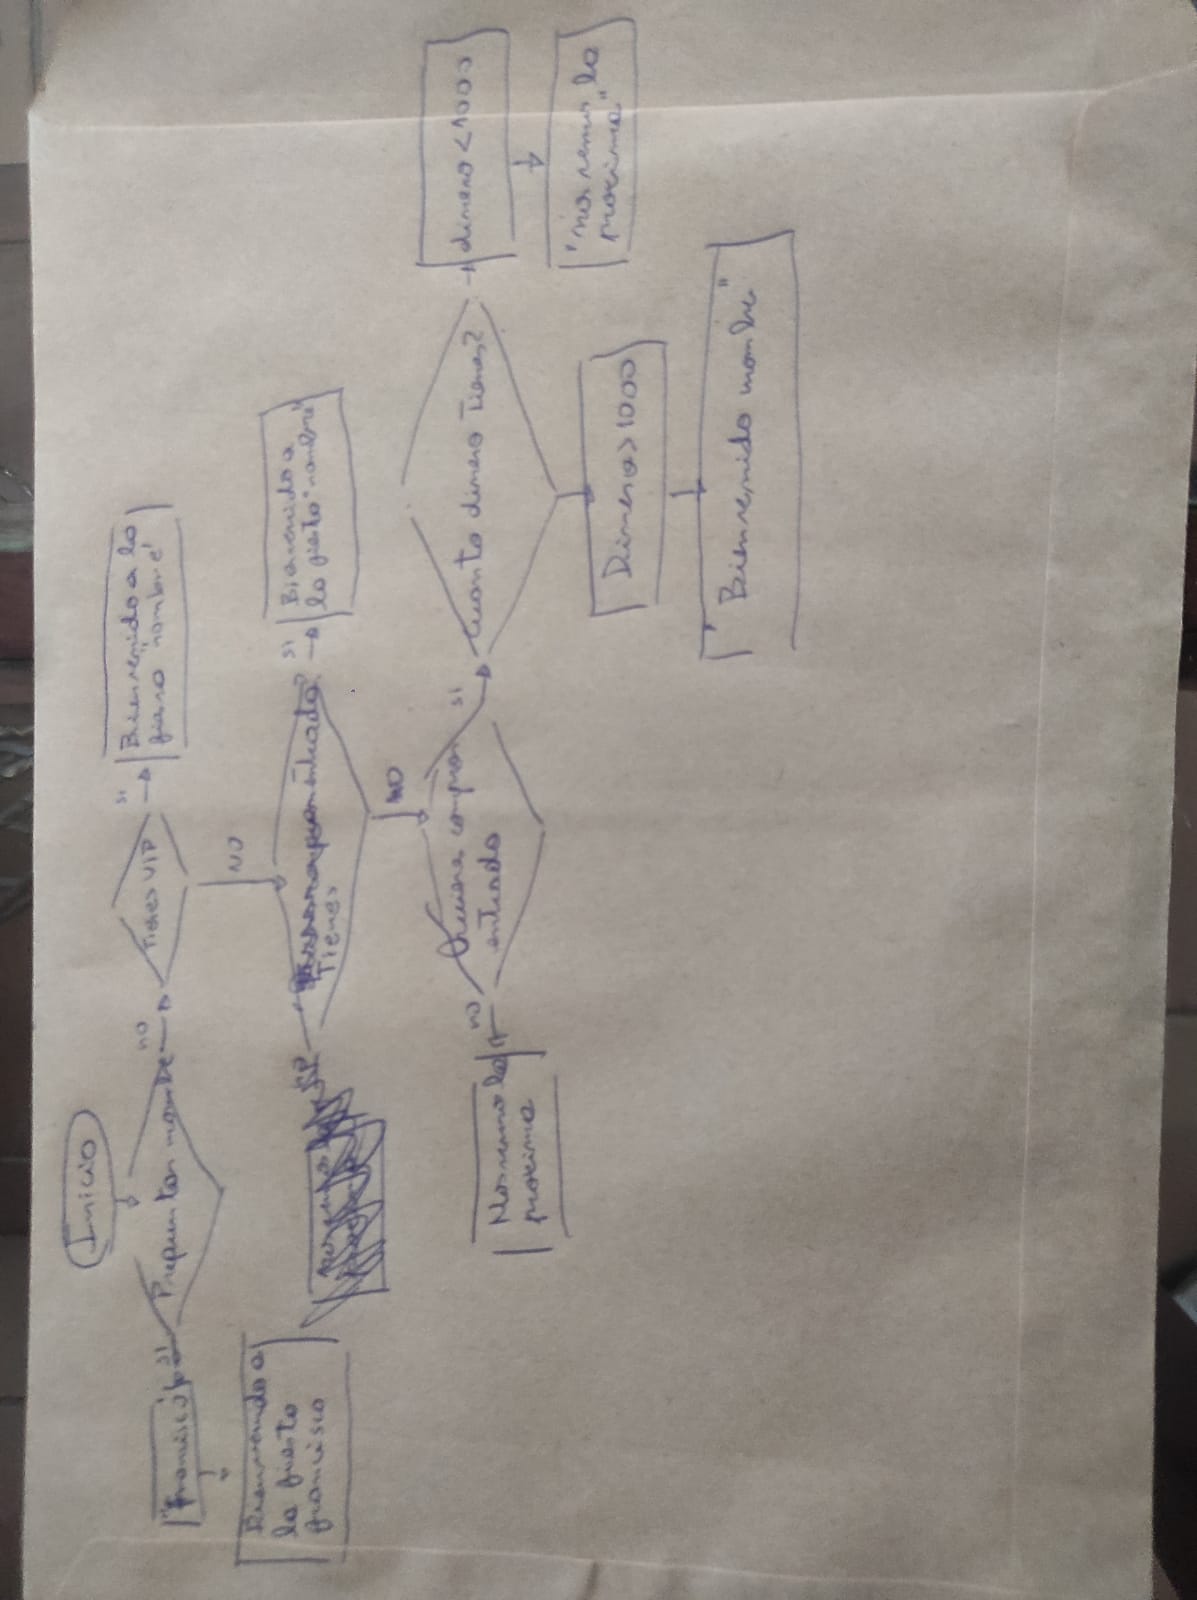 Inicio
Preguntar nombre
si
no
"francisco"
Bienvenido a
la fiesta
francisco
Tienes VIP
si
Bienvenido a la
nombre"
NO
entrada?
Tienes
si
Bienvenido a
la fiesta "nombre"
NO
Quiere comprar
entrada
no
Nos vemos la
proxima
si
Cuanto dinero tienes?
dinero < 1000
"nos vemos la
proxima"
Dinero > 1000
"Bienvenido nombre"